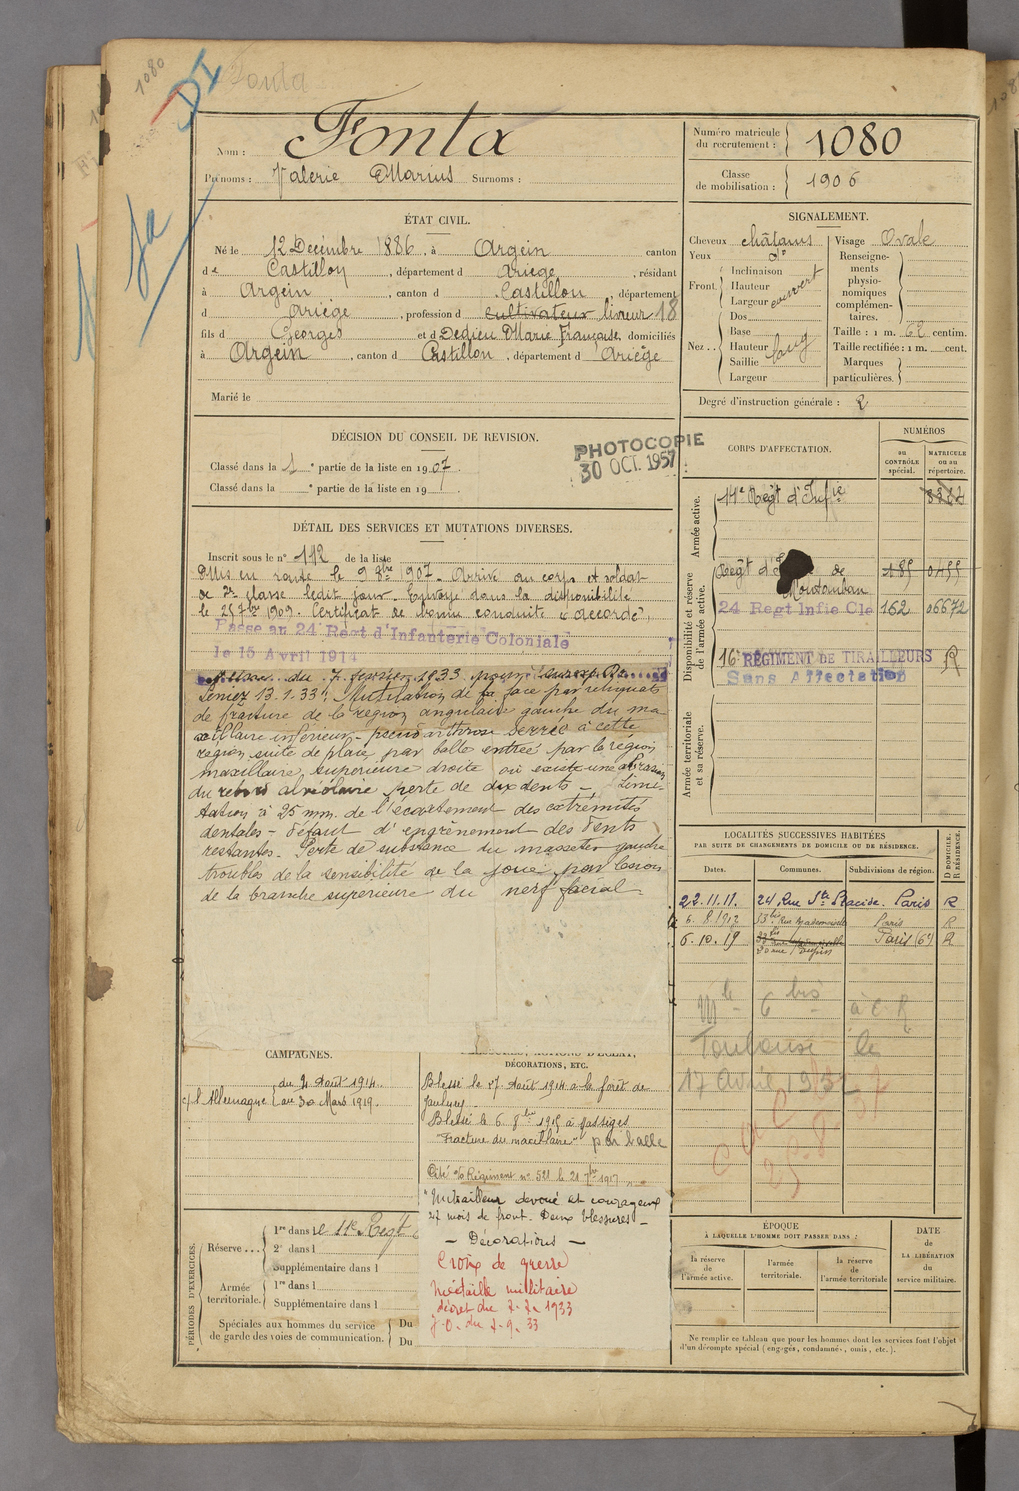 1080
Fonta
DI
Nom : Fonta
Prénoms : Valerie Marius Surnoms :
Numéro matricule du recrutement : 1080
Classe de mobilisation : 1906
ÉTAT CIVIL.
Né le 12 Décembre 1886, à Argein canton
de Castillon, département d Ariège, résidant
à Argein, canton d Castillon, département
d Ariège, profession d cultivateur livreur 18
fils d Georges et d Dedieu Marie Françoise, domiciliés
à Argein, canton d Castillon, département d Ariège
Marié le
SIGNALEMENT.
Cheveux châtains
Yeux do
Front. Inclinaison
Hauteur
Largeur couvert
Nez.. Dos
Base
Hauteur
Saillie long
Largeur
Visage Ovale
Renseignements physionomiques complémentaires.
Taille : 1 m. 62 centim.
Taille rectifiée : 1 m. cent.
Marques particulières.
Degré d'instruction générale : 2
DÉCISION DU CONSEIL DE REVISION.
Classé dans la 1 e partie de la liste en 1907.
Classé dans la e partie de la liste en 19
PHOTOCOPIE
30 OCT. 1957
DÉTAIL DES SERVICES ET MUTATIONS DIVERSES.
Inscrit sous le n° 112 de la liste
Mis en route le 9 8bre 1907. Arrivé au corps et soldat
de 2e classe ledit jour. Envoyé dans la disponibilité
le 25 7bre 1909. Certificat de bonne conduite "accordé".
Passé au 24 Régt d'Infanterie Coloniale
le 15 Avril 1914
du 7 février 1933
13.1.33 : Mutilation de la face par reliquats
de fracture de la région angulaire gauche du ma
xillaire inférieur - pseudarthrose serrée à cette
région, suite de plaie par balle entrée par la région
maxillaire supérieure droite où existe une abrasion
du rebord alvéolaire perte de dix dents - Limi-
tation à 25 mm. de l'écartement des extrémités
dentales - défaut d'engrènement des dents
restantes. Perte de substance du masseter gauche
troubles de la sensibilité de la joue par lésion
de la branche supérieure du nerf facial
CORPS D'AFFECTATION.
NUMÉROS
au CONTRÔLE spécial.
MATRICULE ou au répertoire.
Armée active.
14e Régt d'Infie
Disponibilité et réserve de l'armée active.
Régt d' de Montauban 185
24 Regt Infie Cle 162 06672
16e RÉGIMENT DE TIRAILLEURS R
Sans Affectation
Armée territoriale et sa réserve.
LOCALITÉS SUCCESSIVES HABITÉES
PAR SUITE DE CHANGEMENTS DE DOMICILE OU DE RÉSIDENCE.
Dates. Communes. Subdivisions de région. D DOMICILE. R RÉSIDENCE.
22.11.11. 24 Rue Ste Placide. Paris R
6.8.1912 53 bis Rue Mademoiselle Paris R
6.10.19 Paris (6e) R
Mle 6 bis à C. R
Toulouse le
17 Avril 1932
CAMPAGNES.
c/ l'Allemagne du 4 Août 1914
au 30 Mars 1919.
DÉCORATIONS, ETC.
Blessé le 27 Août 1914 à la forêt de
Jaulnes
Blessé le 6 8bre 1915 à Massiges
"Fracture du maxillaire" par balle
Cité o/ Régiment n° 521 le 21 7bre 1917
"Mitrailleur dévoué et courageux
27 mois de front. Deux blessures -
- Décorations -
Croix de guerre
Médaille militaire
PÉRIODES D'EXERCICES.
Réserve... 1re dans le 11e Régt
2e dans l
Supplémentaire dans l
Armée territoriale. 1re dans l
Supplémentaire dans l
Spéciales aux hommes du service de garde des voies de communication. Du
Du
ÉPOQUE
À LAQUELLE L'HOMME DOIT PASSER DANS :
la réserve de l'armée active.
l'armée territoriale.
la réserve de l'armée territoriale
DATE de LA LIBÉRATION du service militaire.
Ne remplir ce tableau que pour les hommes dont les services font l'objet
d'un décompte spécial (engagés, condamnés, omis, etc.).